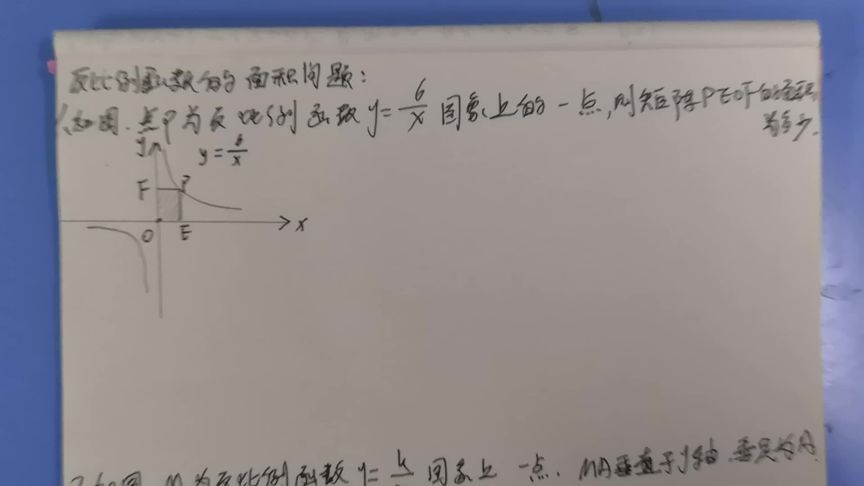 反比例函数的面积问题:
1、如图、点P为反比例函数y=6/x图象上的一点,则矩阵PEOF的面积
为多少.
y
y=6/x
F P
O E x
2、如图 M为反比例函数y=k/x图象上一点、MA垂直于y轴、垂足为A